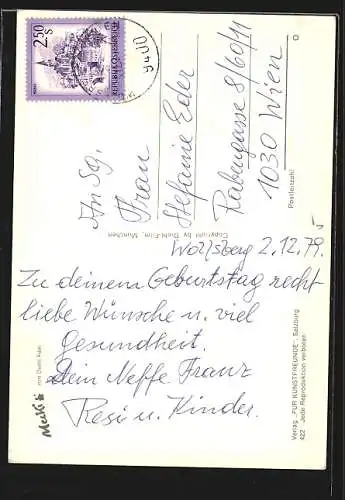 2.50
S
REPUBLIK ÖSTERREICH
9400
An Sg.
Frau
Stefanie Eder
Rabengasse 8/60/11
1030 Wien
Postleitzahl
Copyright by Diehl-Film, München
Wolfsberg 2.12.79.
Zu deinem Geburtstag recht
liebe Wünsche u. viel
Gesundheit.
Dein Neffe Franz
Resi u. Kinder.
Mecki
Verlag „FÜR KUNSTFREUNDE“, Salzburg
422 - Jede Reproduktion verboten